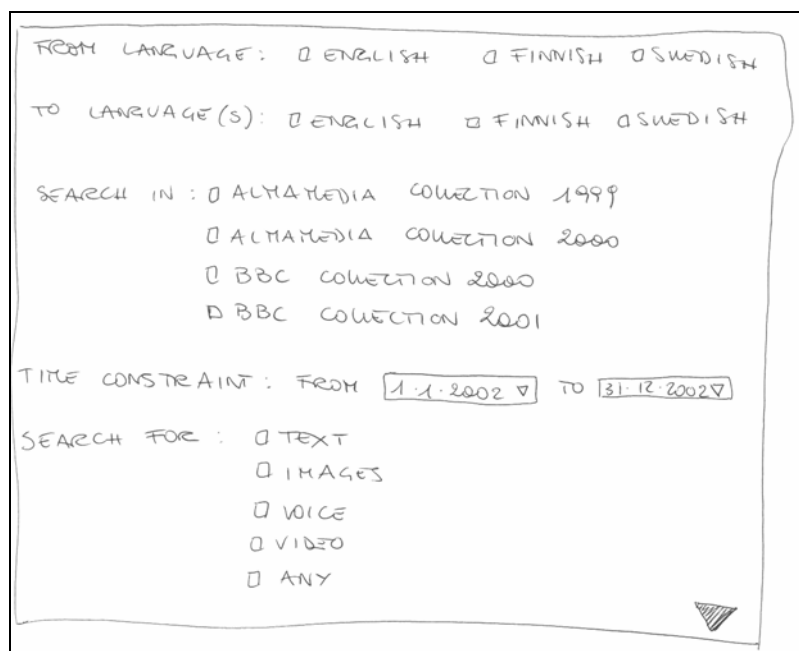 FROM LANGUAGE: ENGLISH FINNISH SWEDISH
TO LANGUAGE(S): ENGLISH FINNISH SWEDISH
SEARCH IN: ALMAMEDIA COLLECTION 1999
ALMAMEDIA COLLECTION 2000
BBC COLLECTION 2000
BBC COLLECTION 2001
TIME CONSTRAINT: FROM 1.1.2002 TO 31.12.2002
SEARCH FOR: TEXT
IMAGES
VOICE
VIDEO
ANY